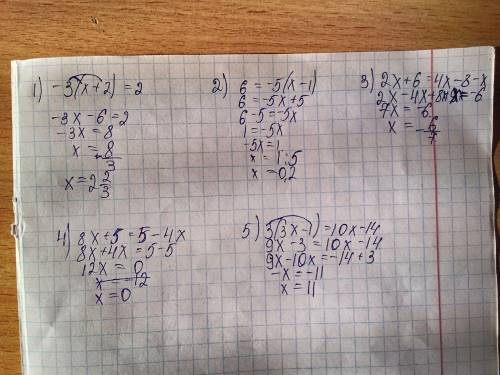 1) -3(x+2) = 2
-3x - 6 = 2
-3x = 8
x = 8/-3
x = 2 2/3
2) 6 = -5(x-1)
6 = -5x+5
6-5 = -5x
1 = -5x
-5x = 1
x = 1:5
x = 0,2
3) 2x+6 = 4x-8-x
7x = -6
x = -6/7
4) 8x+5 = 5-4x
8x+4x = 5-5
12x = 0
x = 0
5) 3(3x-1) = 10x-14
9x-3 = 10x-14
9x-10x = -14+3
-x = -11
x = 11